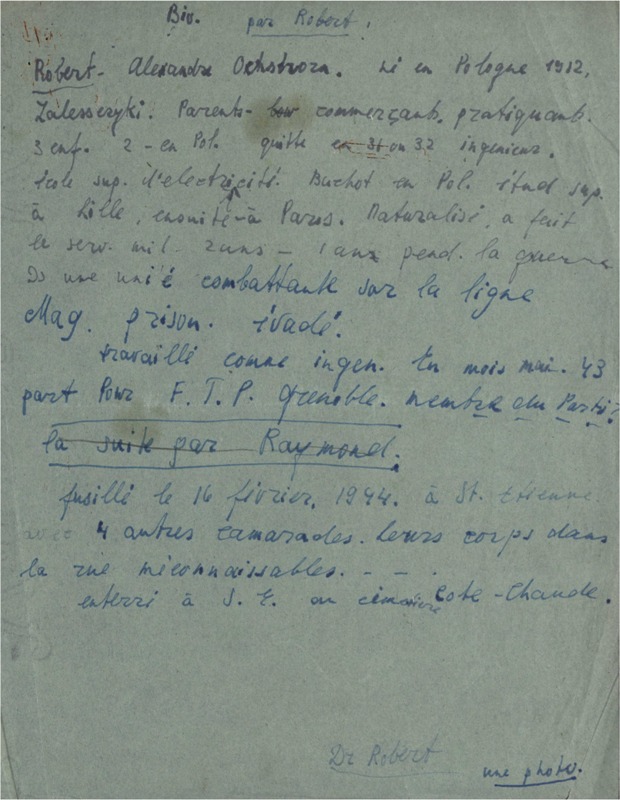 Biv. par Robert.
Robert - Alexandre Ochstrozn. né en Pologne 1912,
Zalesserzyki. Parents - bow commerçants. pratiquants.
3 enf. 2 - en Pol. quitte en 31 ou 32 ingenieur.
école sup. d'electricité. Buchot en Pol. étud sup.
à Lille, enouité - à Paris. Naturalisé, a fait
le serv. mil. 2 ans - 1 anx pend. la guerre
Ds une unié combattante sur la ligne
Mag. prison. évadé.
travaillé comme ingen. En mois mai. 43
part pour F. T. P. Grenoble. membre du Parti?
la suite par Raymond.
fusillé le 16 février, 1944. à St. Etienne
avec 4 autres camarades. Leurs corps dans
la rue méconnaissables. - - .
enterri à S. E. au Cote-Chaude.
Dr Robert
une photo.